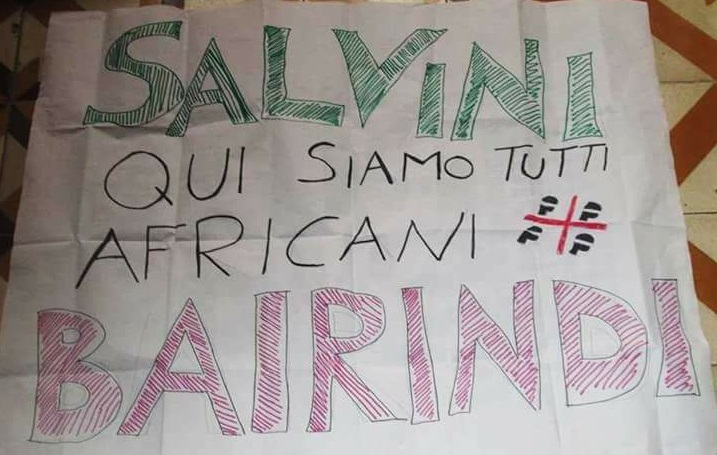 SALVINI
QUI SIAMO TUTTI
AFRICANI
BAIRINDI